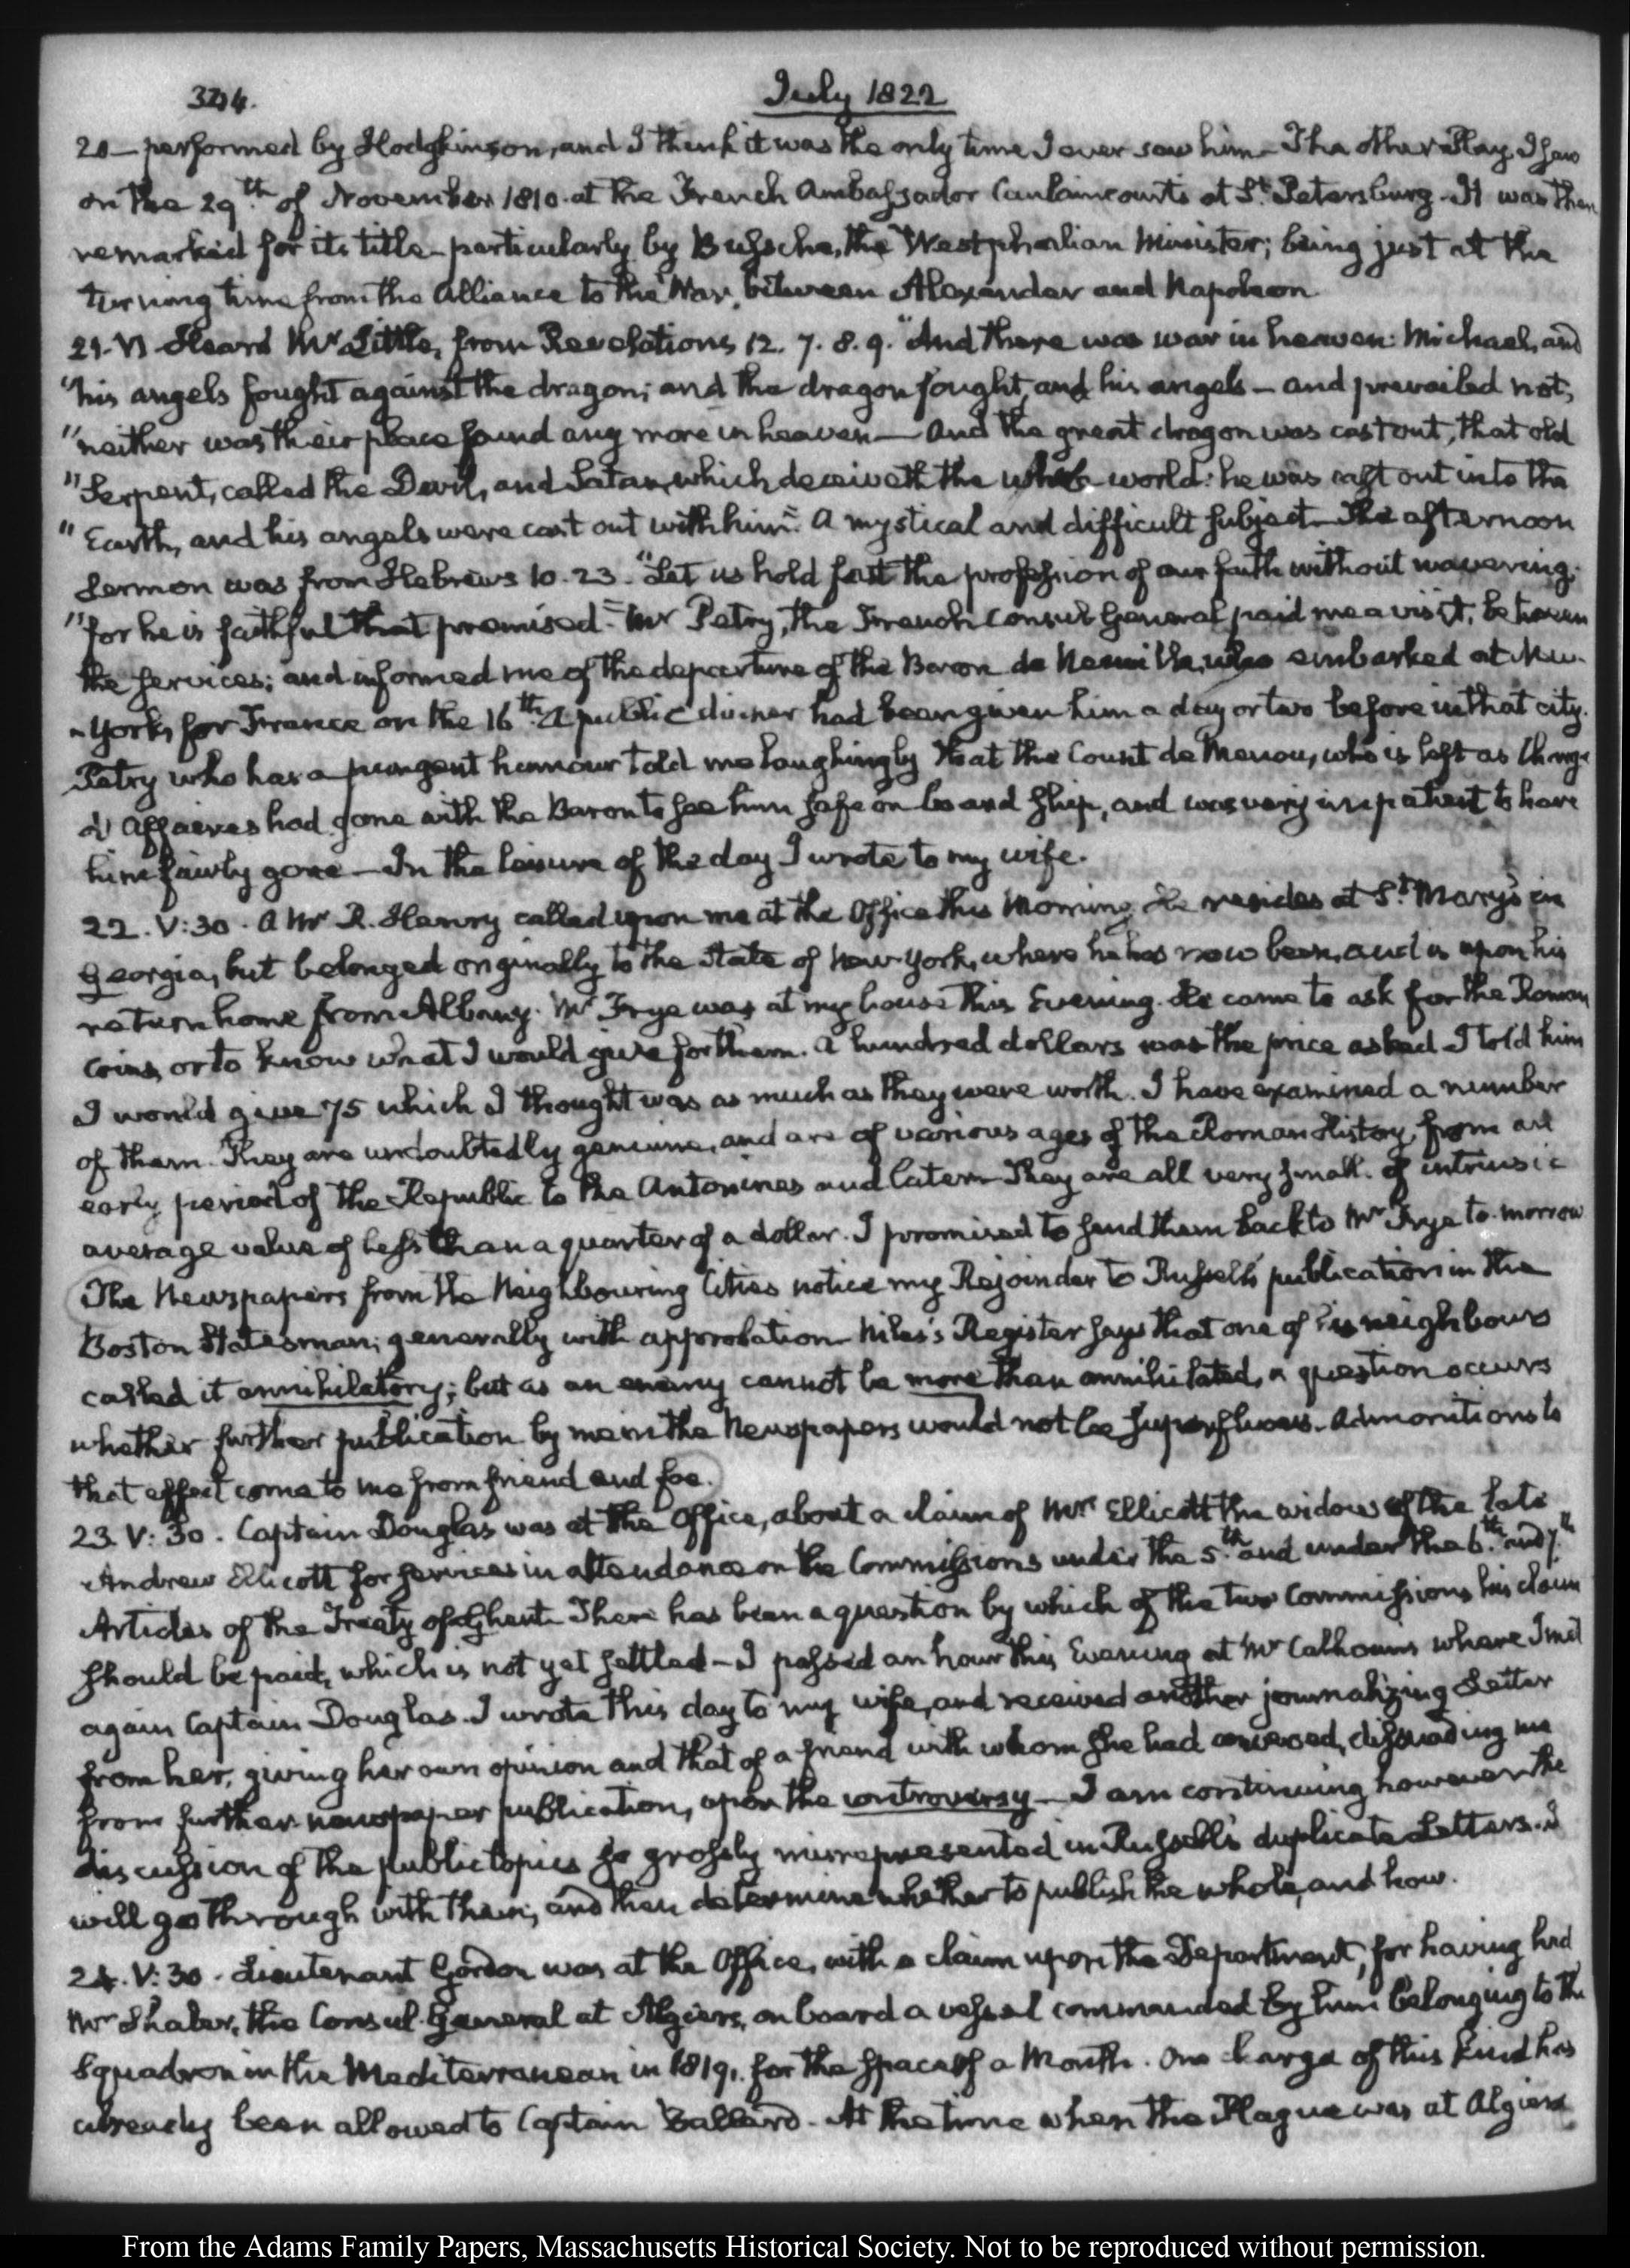 324. July 1822
20 — performed by Hodgkinson, and I think it was the only time I ever saw him — The other Play, I saw
on the 29th of November 1810. at the French Ambassador Caulaincourt's at St. Petersburg. It was then
remarked for its title — particularly by Bussche, the Westphalian Minister; being just at the
turning time from the Alliance to the War, between Alexander and Napoleon.
21. VI. Heard Mr Little, from Revelations 12. 7. 8. 9. "And there was war in heaven: Michael, and
"his angels fought against the dragon; and the dragon fought, and his angels — and prevailed not,
"neither was their place found any more in heaven — And the great dragon was cast out, that old
"Serpent, called the Devil, and Satan, which deceiveth the whole world: he was cast out into the
"Earth, and his angels were cast out with him." A mystical and difficult subject — The afternoon
Sermon was from Hebrews 10. 23. "Let us hold fast the profession of our faith without wavering;
"for he is faithful that promised." Mr Petry, the French Consul General paid me a visit, between
the services; and informed me of the departure of the Baron de Neuville, who embarked at New-
-York, for France on the 16th. A public dinner had been given him a day or two before in that city.
Petry who has a pungent humour told me laughingly that the Count de Menou, who is left as Chargé
d'Affaires had gone with the Baron to see him safe on board ship, and was very impatient to have
him fairly gone — In the leisure of the day I wrote to my wife.
22. V:30. A Mr R. Henry called upon me at the Office this Morning. He resides at St. Mary's in
Georgia, but belonged originally to the State of New-York, where he has now been, and is upon his
return home from Albany. Mr Frye was at my house this Evening. He came to ask for the Roman
Coins, or to know what I would give for them. A hundred dollars was the price asked. I told him
I would give 75 which I thought was as much as they were worth. I have examined a number
of them. They are undoubtedly genuine, and are of various ages of the Roman History, from an
early period of the Republic to the Antonines and later — They are all very small. of intrinsic
average value of less than a quarter of a dollar. I promised to send them back to Mr Frye to-morrow
The Newspapers from the Neighbouring Cities notice my Rejoinder to Russell's publication in the
Boston Statesman; generally with approbation — Niles's Register says that one of his neighbours
called it annihilatory; but as an enemy cannot be more than annihilated, a question occurs
whether further publication by me in the Newspapers would not be superfluous. Admonitions to
that effect come to me from friend and foe.
23. V:30. Captain Douglas was at the Office, about a claim of Mrs Ellicott the widow of the late
Andrew Ellicott for services in attendance on the Commissions under the 5th and under the 6th and 7th
Articles of the Treaty of Ghent. There has been a question by which of the two Commissions his claim
should be paid, which is not yet settled — I passed an hour this Evening at Mr Calhoun's where I met
again Captain Douglas. I wrote this day to my wife, and received another journalizing Letter
from her, giving her own opinion and that of a friend with whom she had conversed, dissuading me
from further newspaper publication, upon the controversy — I am continuing however the
discussion of the public topics so grossly misrepresented in Russell's duplicate Letters. I
will go through with them; and then determine whether to publish the whole, and how.
24. V:30. Lieutenant Gordon was at the Office, with a claim upon the Department, for having had
Mr Shaler, the Consul General at Algiers, on board a vessel commanded by him belonging to the
Squadron in the Mediterranean in 1819. for the space of a Month. One charge of this kind has
already been allowed to Captain Ballard. At the time when the Plague was at Algiers
From the Adams Family Papers, Massachusetts Historical Society. Not to be reproduced without permission.